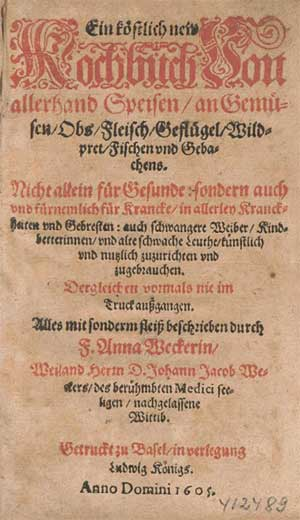 Ein köstlich new
Kochbuch Von
allerhand Speisen / an Gemü-
sen / Obs / Fleisch / Geflügel / Wild-
pret / Fischen vnd Geba-
chens.
Nicht allein für Gesunde: sondern auch
vnd fürnemlich für Krancke / in allerley Kranck-
heiten vnd Gebresten: auch schwangere Weiber / Kind-
betterinnen / vnd alte schwache Leuthe / künstlich
vnd nutzlich zuzurichten vnd
zugebrauchen.
Dergleichen vormals nie im
Truck außgangen.
Alles mit sonderm fleiß beschrieben durch
F. Anna Weckerin /
Weiland Herrn D. Johann Jacob We-
ckers / des berühmbten Medici see-
ligen / nachgelassene
Wittib.
Getruckt zu Basel / in verlegung
Ludwig Königs.
Anno Domini 1605.
412489